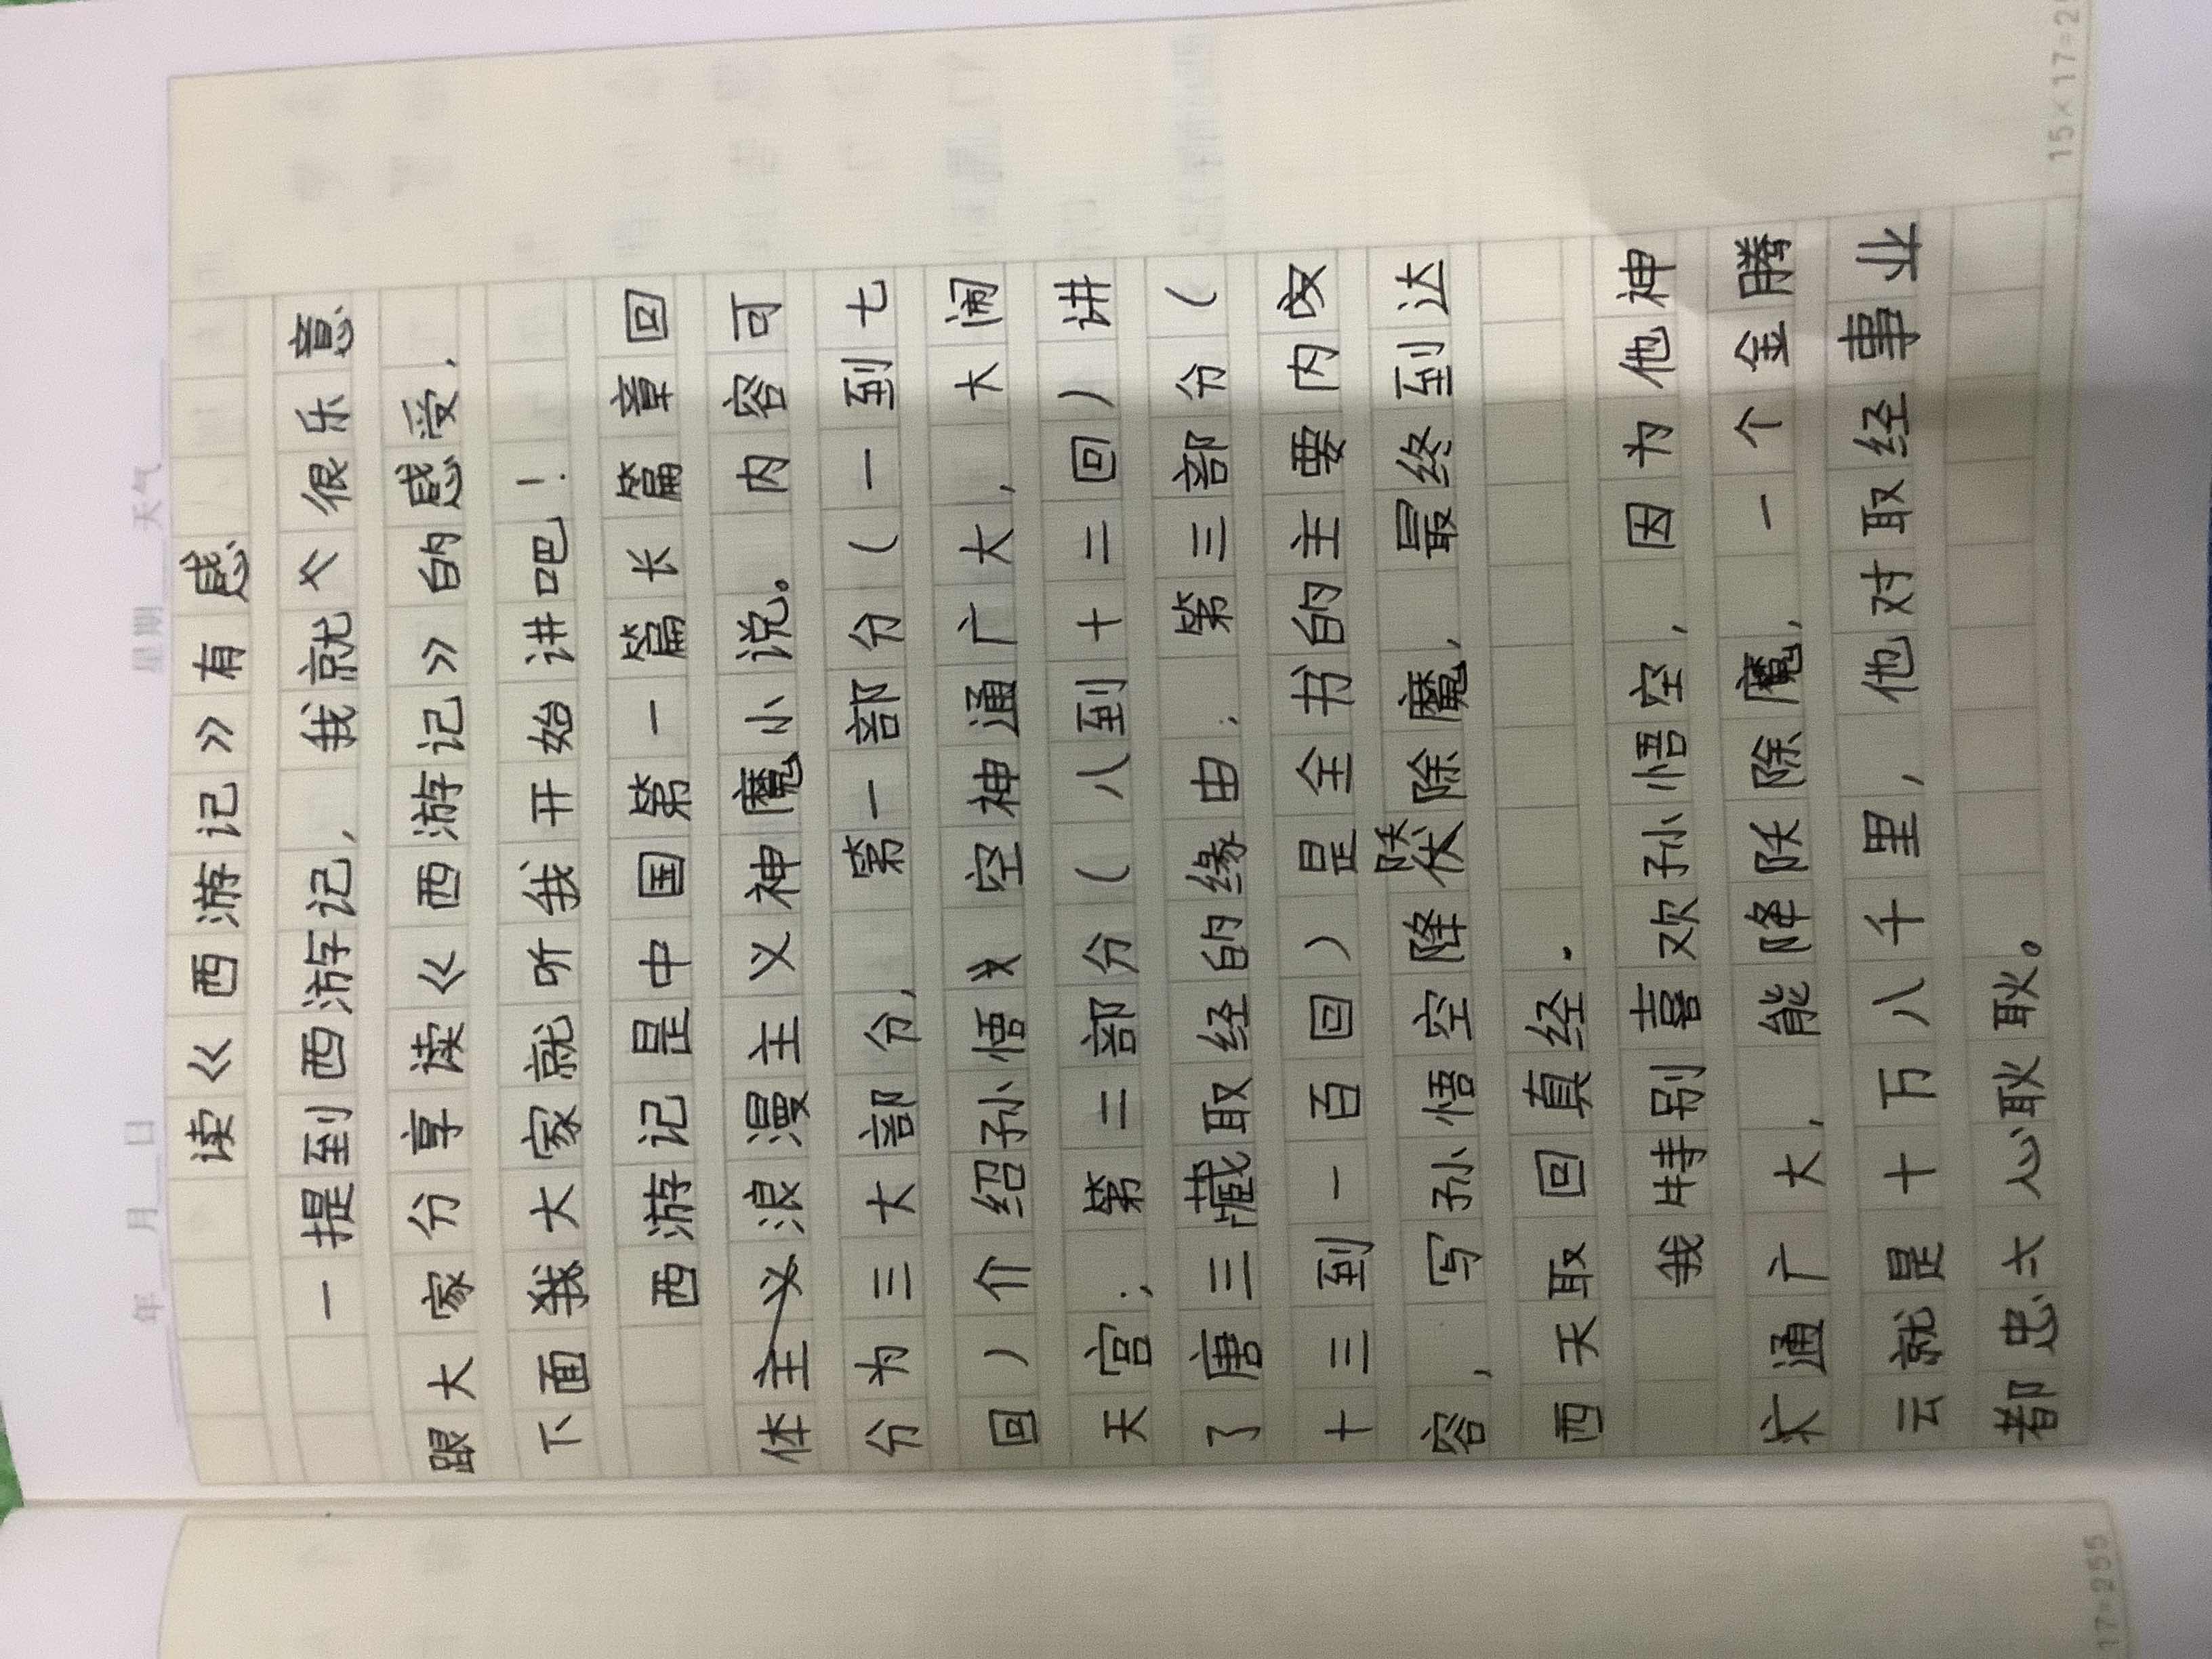 年 月 日 星期 天气
读《西游记》有感
一提到西游记，我就很乐意
跟大家分享读《西游记》的感受，
下面我大家就听我开始讲吧！
西游记是中国第一篇长篇章回
体主义浪漫主义神魔小说。内容可
分为三大部分，第一部分（一到七
回）介绍孙悟空神通广大，大闹
天宫；第二部分（八到十二回）讲
了唐三藏取经的缘由；第三部分（
十三到一百回）是全书的主要内
容，写孙悟空降妖除魔，最终到达
西天取回真经.
我特别喜欢孙悟空，因为他神
通广大，能降妖除魔，一个金腾
云就是十万八千里，他对取经事业
都忠心耿耿。
15×17=2
17=255